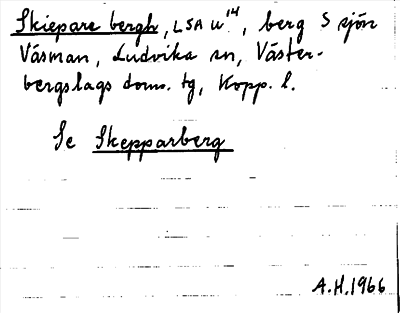 Skiepare bergh, LSA W 14, berg S sjön
Väsman, Ludvika sn, Väster-
bergslags doms. tg, Kopp. l.
Se Skepparberg
A.H. 1966